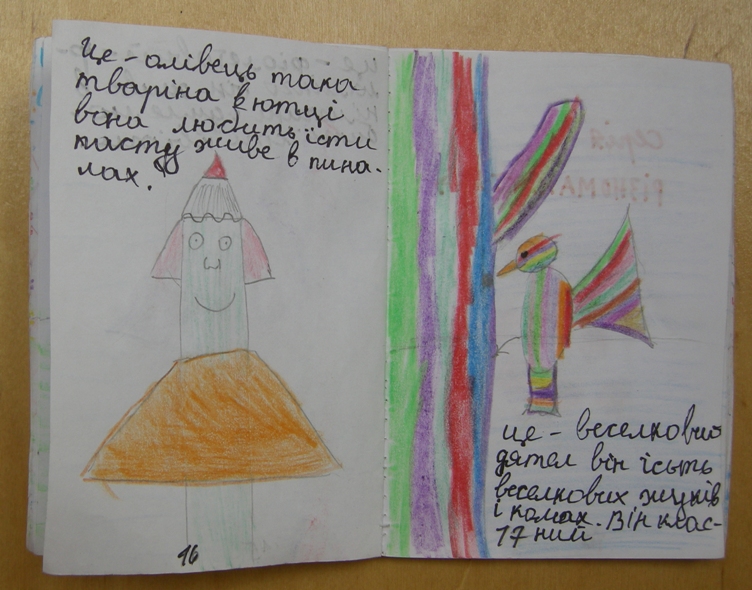 Це - олівець така
тваріна в ютці
вона любить їсти
пасту живе в пина-
лах.
16
це - веселковий
дятел він їсьть
веселкових жуків
і комах. Він клас-
17 ний